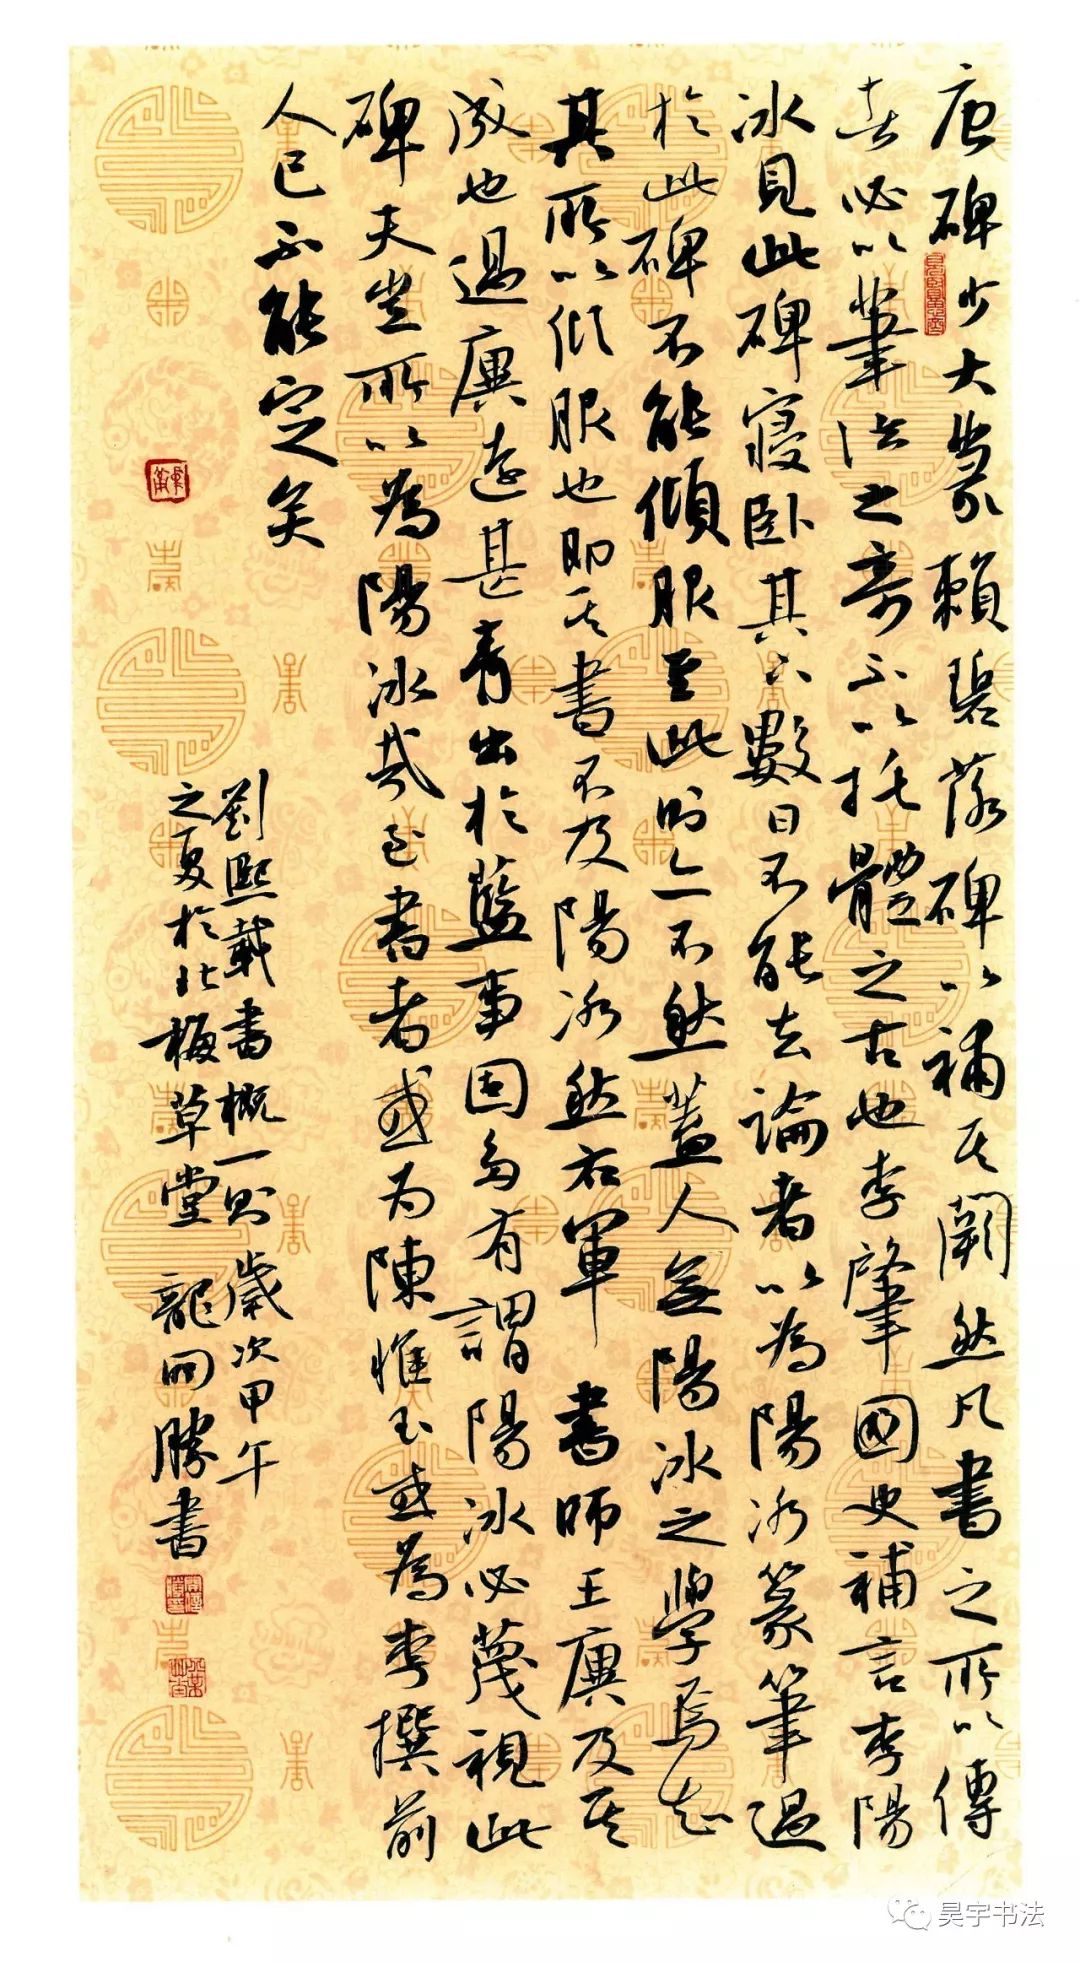 唐碑少大篆賴碧落碑以補其闕然凡書之所以傳
者必以筆法之奇不以托體之古也李肇國史補言李陽
冰見此碑寢卧其下數日不能去論者以為陽冰篆筆過
於此碑不能傾服至此則亦不然蓋人無陽冰之學焉知
其所以傾服也即其書不及陽冰然右軍書師王廙及其
成也過廙遠甚青出於藍事固多有謂陽冰必蔑視此
碑夫豈所以為陽冰哉至書者或为陳惟玉或為李撰前
人已不能定矣
劉熙載書概一則歲次甲午
之夏於北梅草堂 龍開勝書
昊宇书法